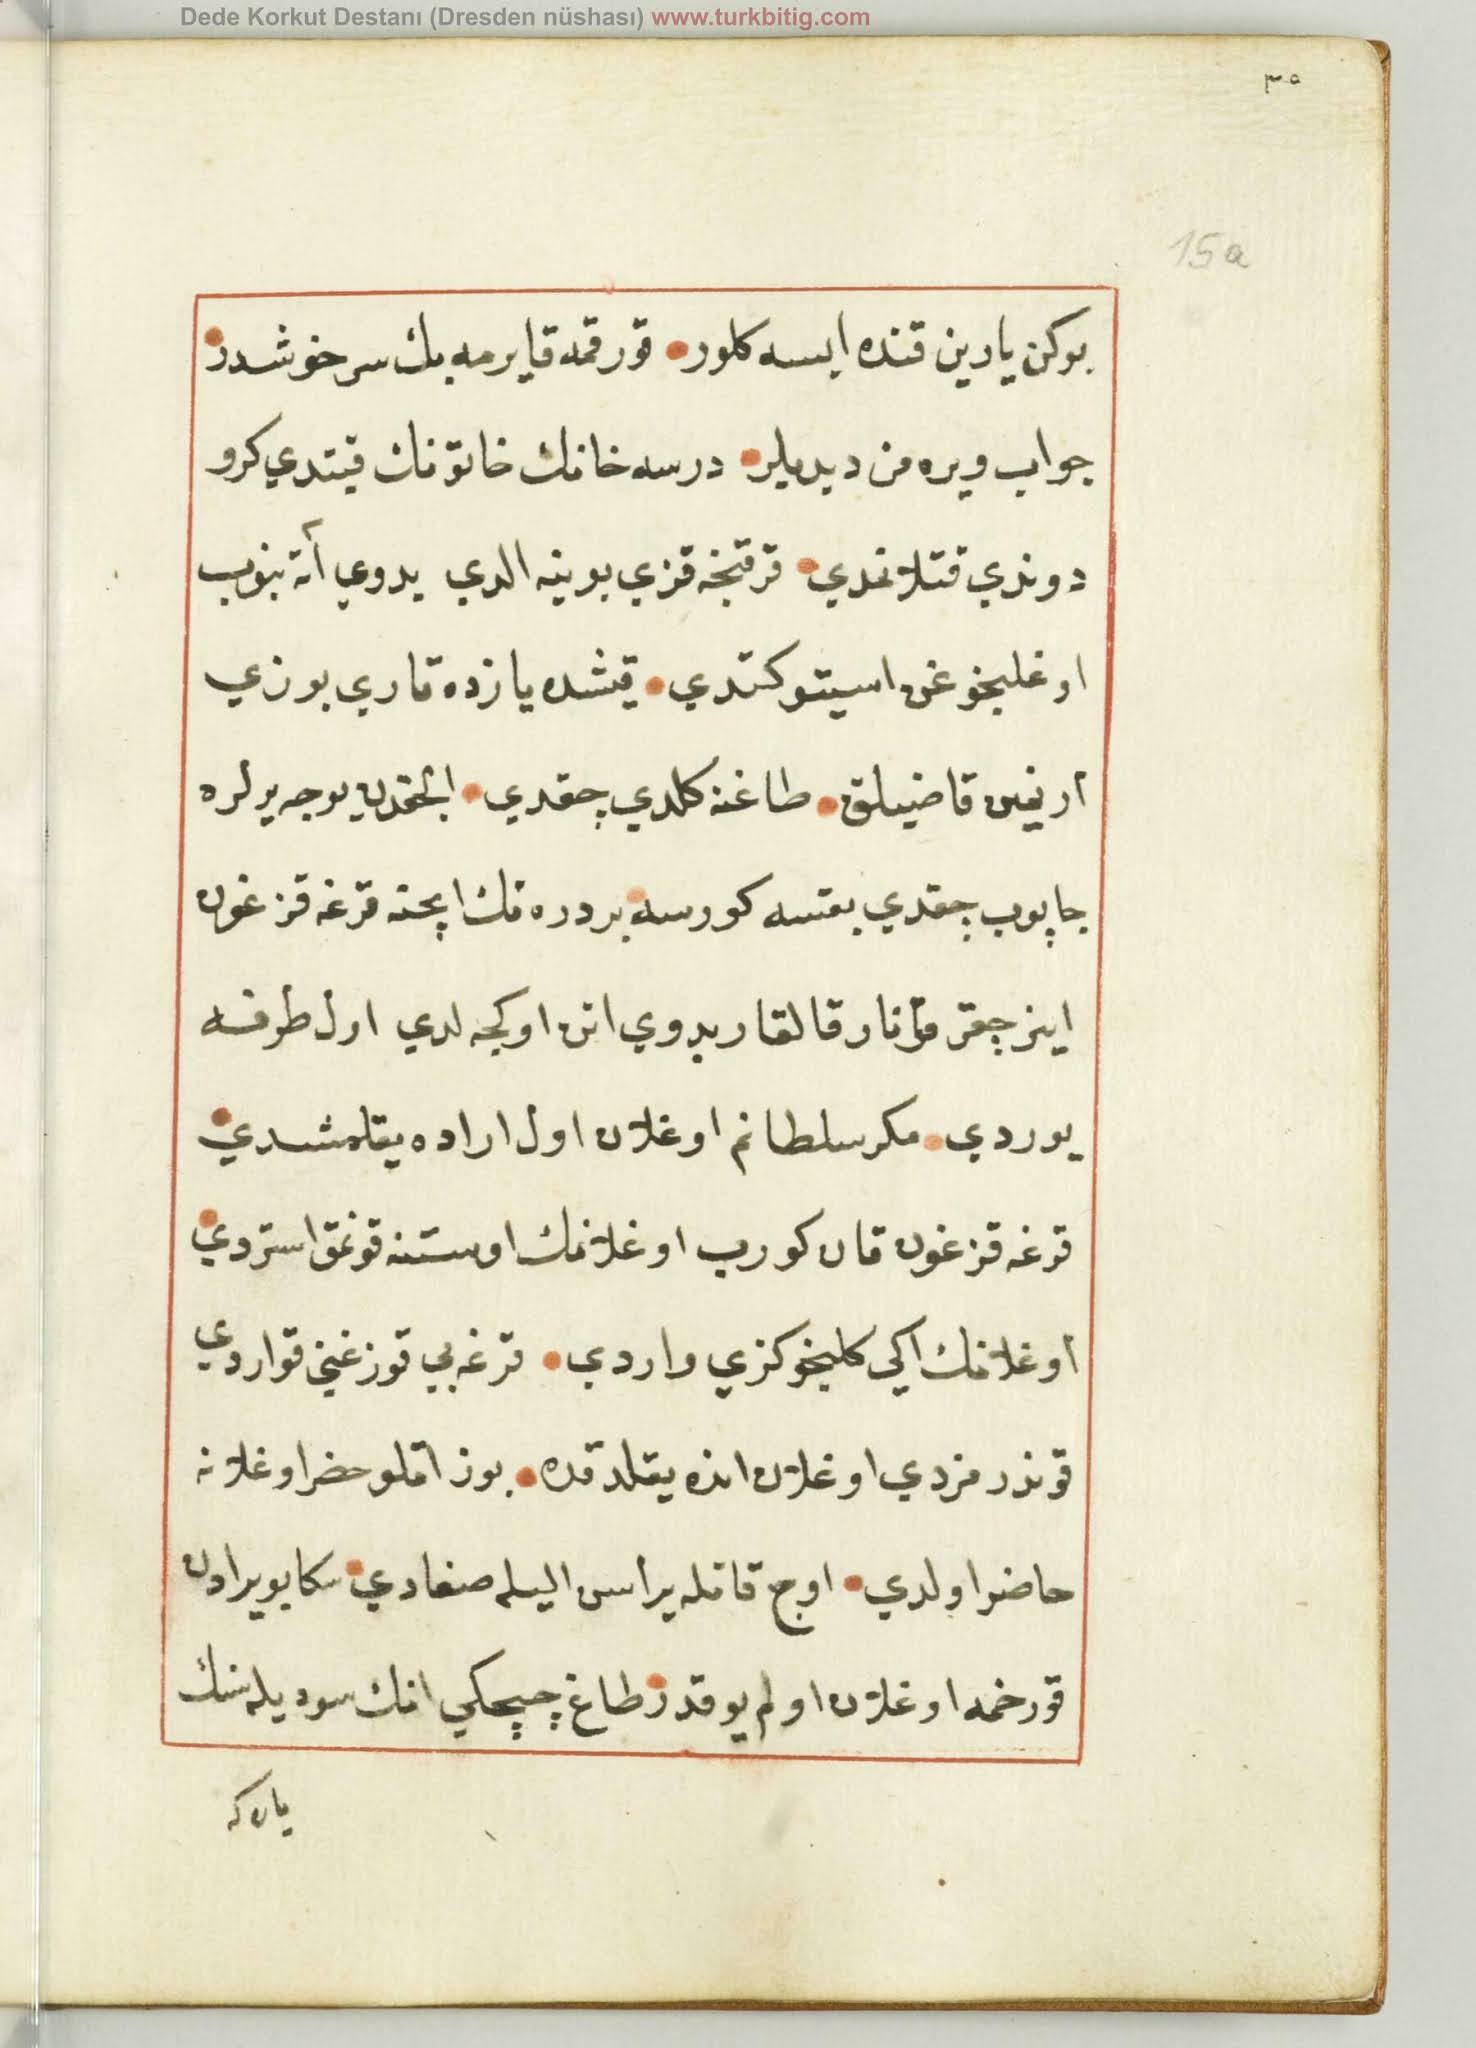 Dede Korkut Destanı (Dresden nüshası) www.turkbitig.com
٣٥
15a
بوكن يارين قنده ايسه كلور قورقمه قايرمه بك سرخوشدر
جواب ويره من ديديلر درسه خانك خاتونك قيتدي كرو
دوندي قتلانمدي قرقنجه قزي بوينه الدي بدوي آته بنوب
اوغلنجوغن استيو كتدي قيشده يازده قاري بوزي
اريمين قاضيلق طاغنه كلدي چقدي الچقدن يوجه يرلره
چاپوب چقدي بقسه كورسه بر دره نك ايچنه قرغه قزغون
اينر چقر قونار قالقار بدوي اتن اوكجه لدي اول طرفه
يوردي مكر سلطانم اوغلان اول اراده يقلمشدي
قرغه قزغون قان كورب اوغلانك اوستنه قونمق استردي
اوغلانك اكي كلبجوكزي واردي قرغه يي قوزغني قواردي
قوندرمزدي اوغلان انده يقلدقده بوز اتلو حضر اوغلانه
حاضر اولدي اوچ قاتله يراسن اليله صغادي سكا بو يرادن
قورخمه اوغلان اولم يوقدر طاغ چيچكي انك سوديله سنك
ياركه